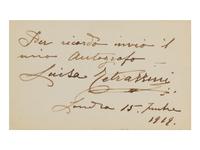 Per ricordo invio il
mio Autografo
Luisa Tetrazzini
Londra 15.
1919.